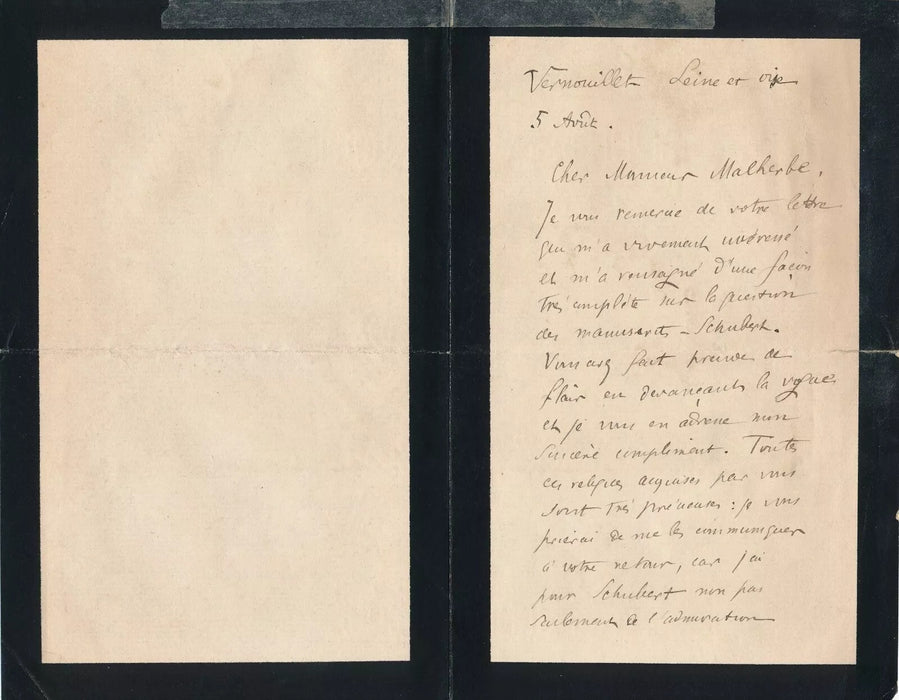 Vernouillet Seine et Oise
5 Août.
Cher Monsieur Malherbe,
Je vous remercie de votre lettre
qui m'a vivement intéressé
et m'a renseigné d'une façon
très complète sur la question
des manuscrits - Schubert.
Vous avez fait preuve de
flair en devançant la vogue
et je vous en adresse mon
sincère compliment. Toutes
ces reliques acquises par vous
sont très précieuses : je vous
prierai de me les communiquer
à votre retour, car j'ai
pour Schubert non pas
seulement de l'admiration